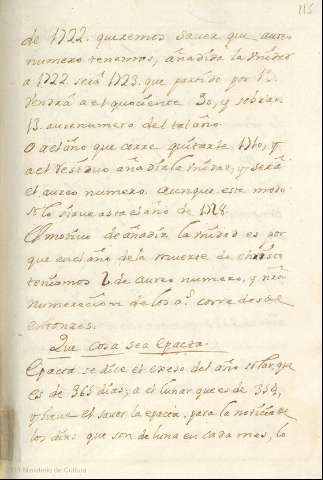 115
de 1722. queremos saver que aureo
numero tenemos, añadida la Unidad
a 1722. será 1723. que partido por 19.
Vendrá a el quociente 90, y sobran
13. aureo numero del tal año.
O a el año que corre quitarle 1710, y
a el residuo añadir la Unidad, y será
el aureo numero. aunque este modo
solo sirve asta el año de 1728.
El motivo de añadir la Unidad es por
que en el año de la muerte de christo
teniamos 2 de aureo numero, y nra
numeracion de los as. corre desde
entonzes.
Que cosa sea Epacta.
Epacta se dice el exceso del año solar, que
es de 365 dias; a el lunar que es de 354,
y sirve el saver la epacta, para la noticia de
los dias que son de luna en cada mes, lo
Ministerio de Cultura